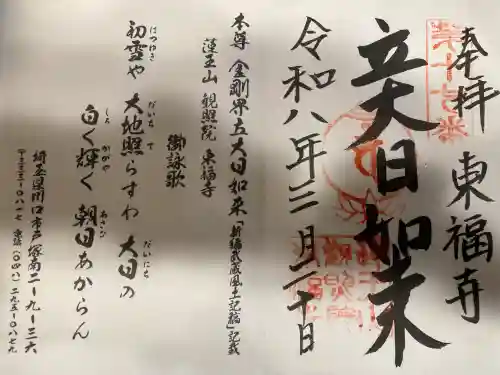 奉拝 東福寺
立大日如来
令和八年三月二十日
本尊 金剛界立大日如来「新編武蔵風土記稿」記載
蓮王山 観照院 東福寺
御詠歌
はつゆき だいち て だいにち
初雪や 大地照らすわ 大日の
しろ かがや あさひ
白く輝く 朝日あからん
埼玉県川口市戸塚南二-九-三六
〒三三三-〇八一七 電話(〇四八)二九五-〇八七九